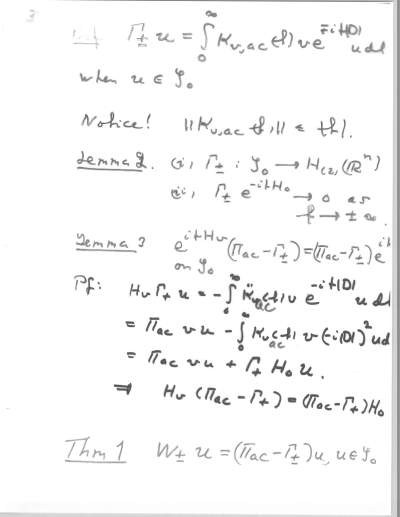 3
Γ± u = ∫₀^∞ K_{v,ac}(t) v e^{∓it|D|} u dt
when u ∈ 𝒮₀
Notice! ||K_{v,ac}(t)|| ≤ |t|.
Lemma 2. (i) Γ± : 𝒮₀ → H_{(2)}(ℝⁿ)
(ii) Γ± e^{-itH₀} → 0 as
t → ±∞
Lemma 3 e^{itH_v}(Π_ac − Γ±) = (Π_ac − Γ±) e^{it
on 𝒮₀
Pf: H_v Γ+ u = −∫₀^∞ K̈_{v,ac}(t) v e^{-it|D|} u dt
= Π_ac v u − ∫₀^∞ K_{v,ac}(t) v (−i|D|)² u d
= Π_ac v u + Γ+ H₀ u.
⇒ H_v (Π_ac − Γ+) = (Π_ac − Γ+) H₀
Thm 1 W± u = (Π_ac − Γ±) u, u ∈ 𝒮₀